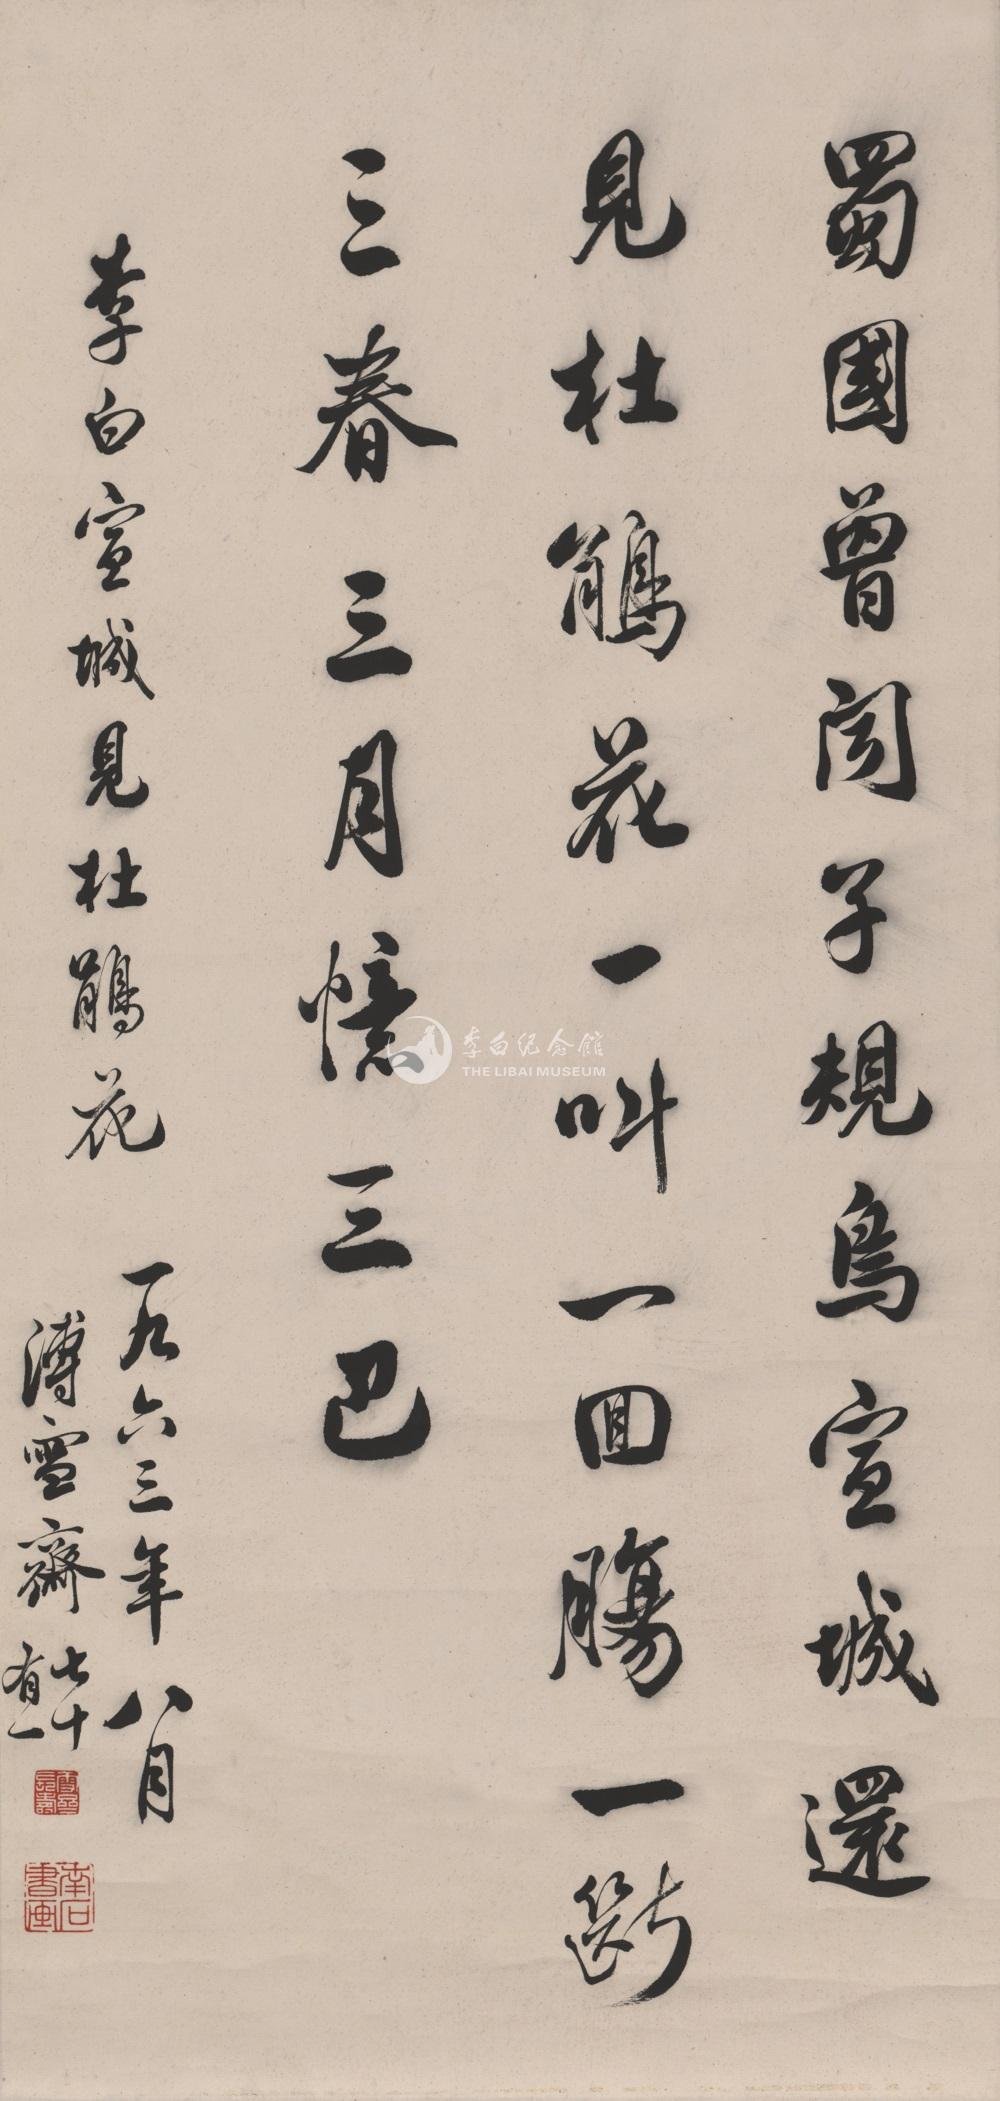 蜀國曾聞子規鳥宣城還
見杜鵑花一叫一回腸一斷
三春三月憶三巴
李白宣城見杜鵑花
一九六三年八月
溥雪齋七十有一
南石書画
李白纪念館
THE LIBAI MUSEUM